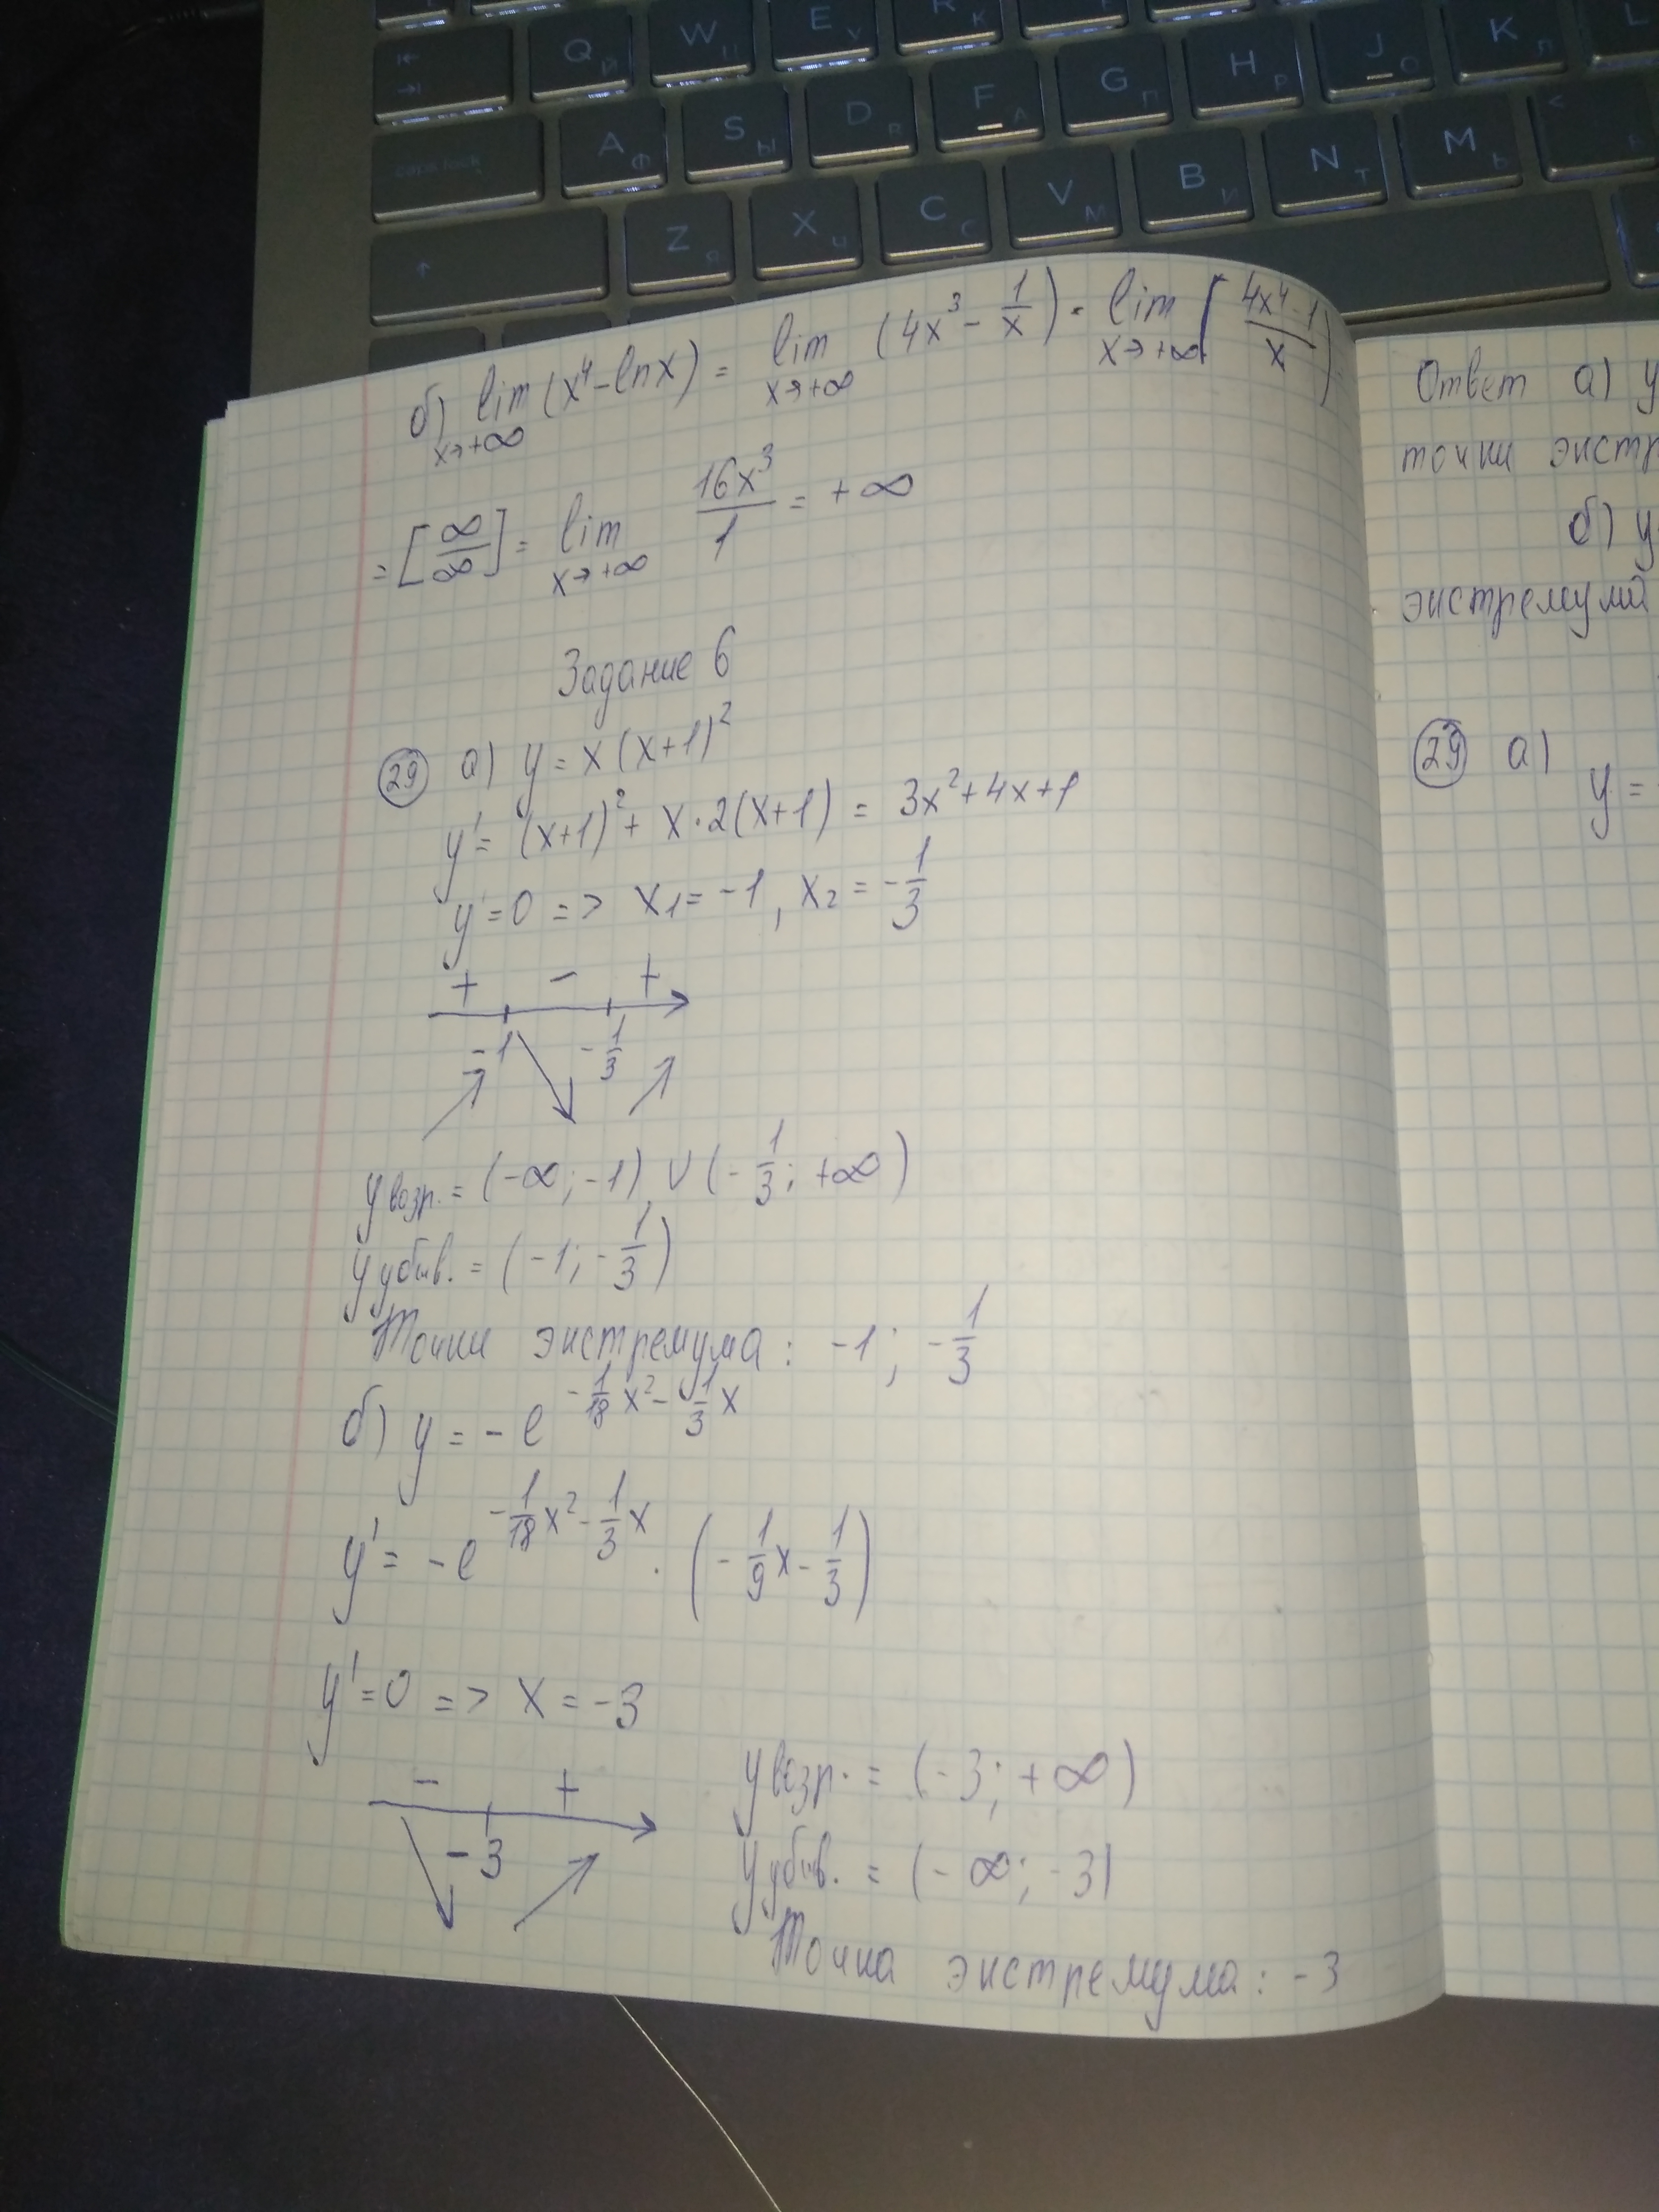 Q Й W Ц E У R К
A Ф S Ы D В F А G П H Р J О K Л L
caps lock
Z Я X Ч C С V М B И N Т M Ь
б) lim x→+∞ (x⁴ - ln x) = lim x→+∞ (4x³ - 1/x) = lim x→+∞ (4x⁴-1/x)
= [∞/∞] = lim x→+∞ 16x³/1 = +∞
Задание 6
29 а) y = x(x+1)²
y' = (x+1)² + x·2(x+1) = 3x²+4x+1
y'=0 => x₁ = -1, x₂ = -1/3
+ - +
-1 -1/3
y возр. = (-∞; -1) ∪ (-1/3; +∞)
y убыв. = (-1; -1/3)
Точки экстремума: -1; -1/3
б) y = -e^(-1/18 x² - 1/3 x)
y' = -e^(-1/18 x² - 1/3 x) · (-1/9 x - 1/3)
y'=0 => x = -3
- +
-3
y возр. = (-3; +∞)
y убыв. = (-∞; -3)
Точка экстремума: -3
Ответ а) y
точки экстр
б) y
экстремума
29 а)
y =